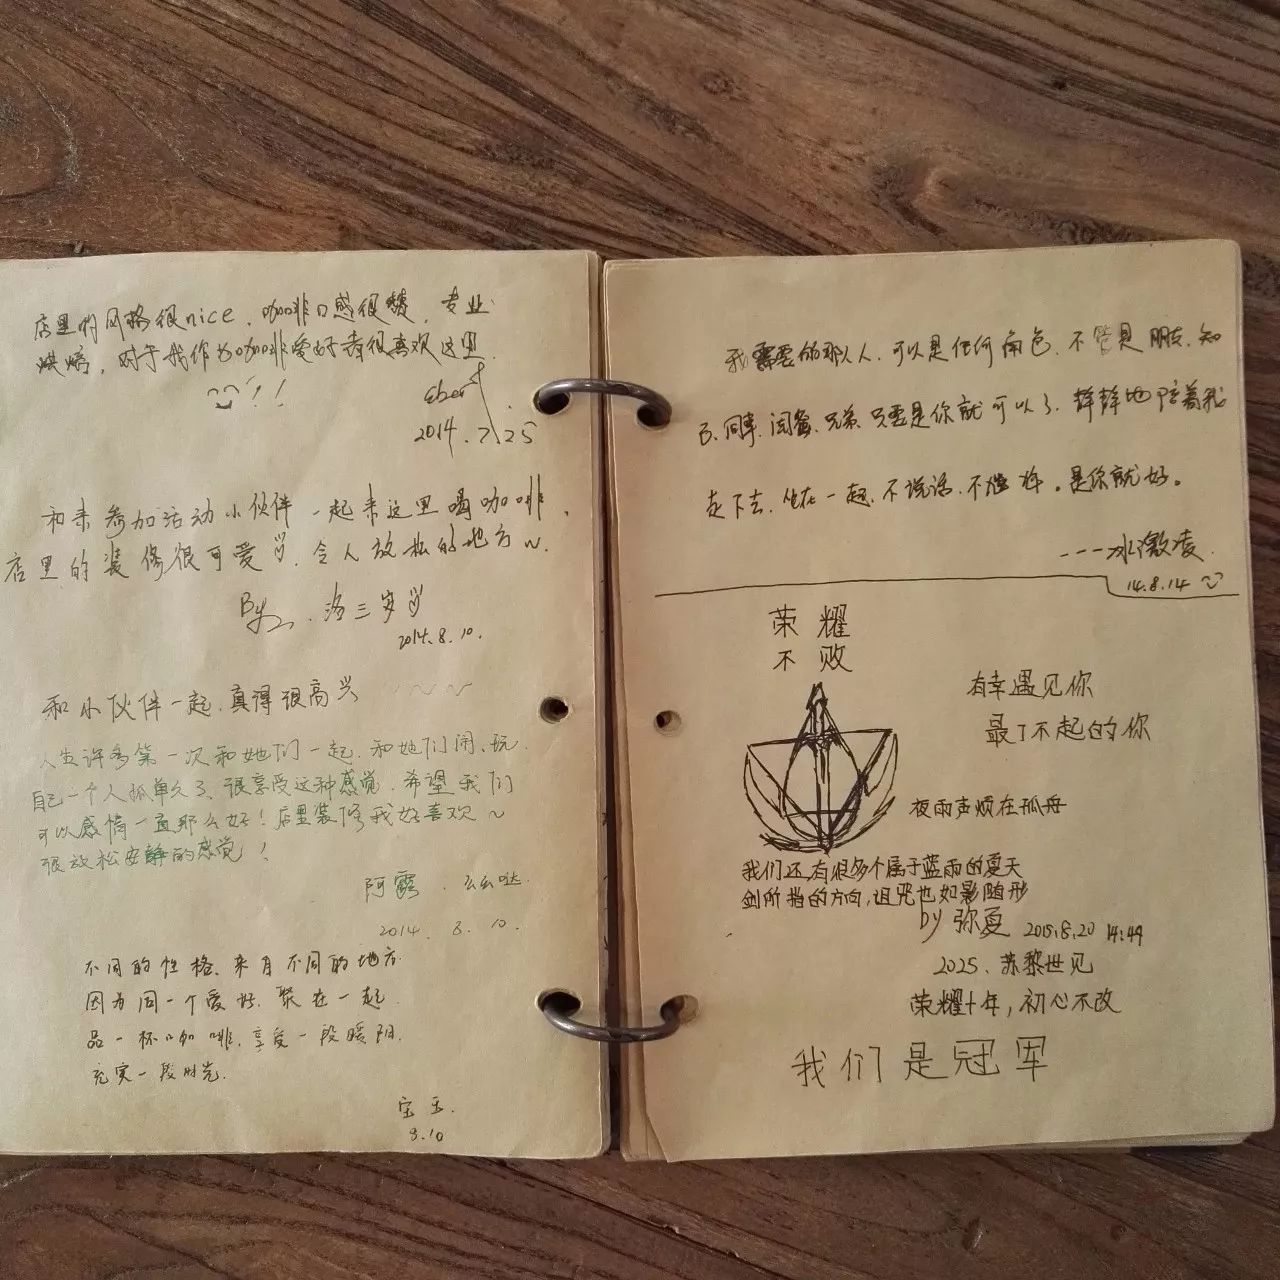 店里的风格很nice，咖啡口感很赞，专业
烘焙，对于我作为咖啡爱好者很喜欢这里.
!!
2014.7.25
和来参加活动小伙伴一起来这里喝咖啡，
店里的装修很可爱，令人放松的地方~.
By 洛三岁
2014.8.10.
和小伙伴一起,真得很高兴~~~
人生许多第一次和她们一起.和她们闹、玩.
自己一个人孤单久了、很享受这种感觉.希望我们
可以感情一直那么好!店里装修我好喜欢~
很放松安静的感觉!
阿露.么么哒.
2014.8.10.
不同的性格、来自不同的地方
因为同一个爱好.聚在一起
品一杯咖啡,享受一段暖阳.
充实一段时光.
宝玉.
8.10
我需要的那人.可以是任何角色.不管是朋友、知
己、同事、闺蜜、兄弟.只要是你就可以了.静静地陪着我
走下去.坐在一起.不说话.不尴尬。是你就好。
---冰激凌.
14.8.14
荣耀
不败
有幸遇见你
最了不起的你
夜雨声烦在孤舟
我们还有很多个属于蓝雨的夏天
剑所指的方向,诅咒也如影随形
by 弥夏 2015.8.20 14:49
2025、苏黎世见
荣耀十年，初心不改
我们是冠军